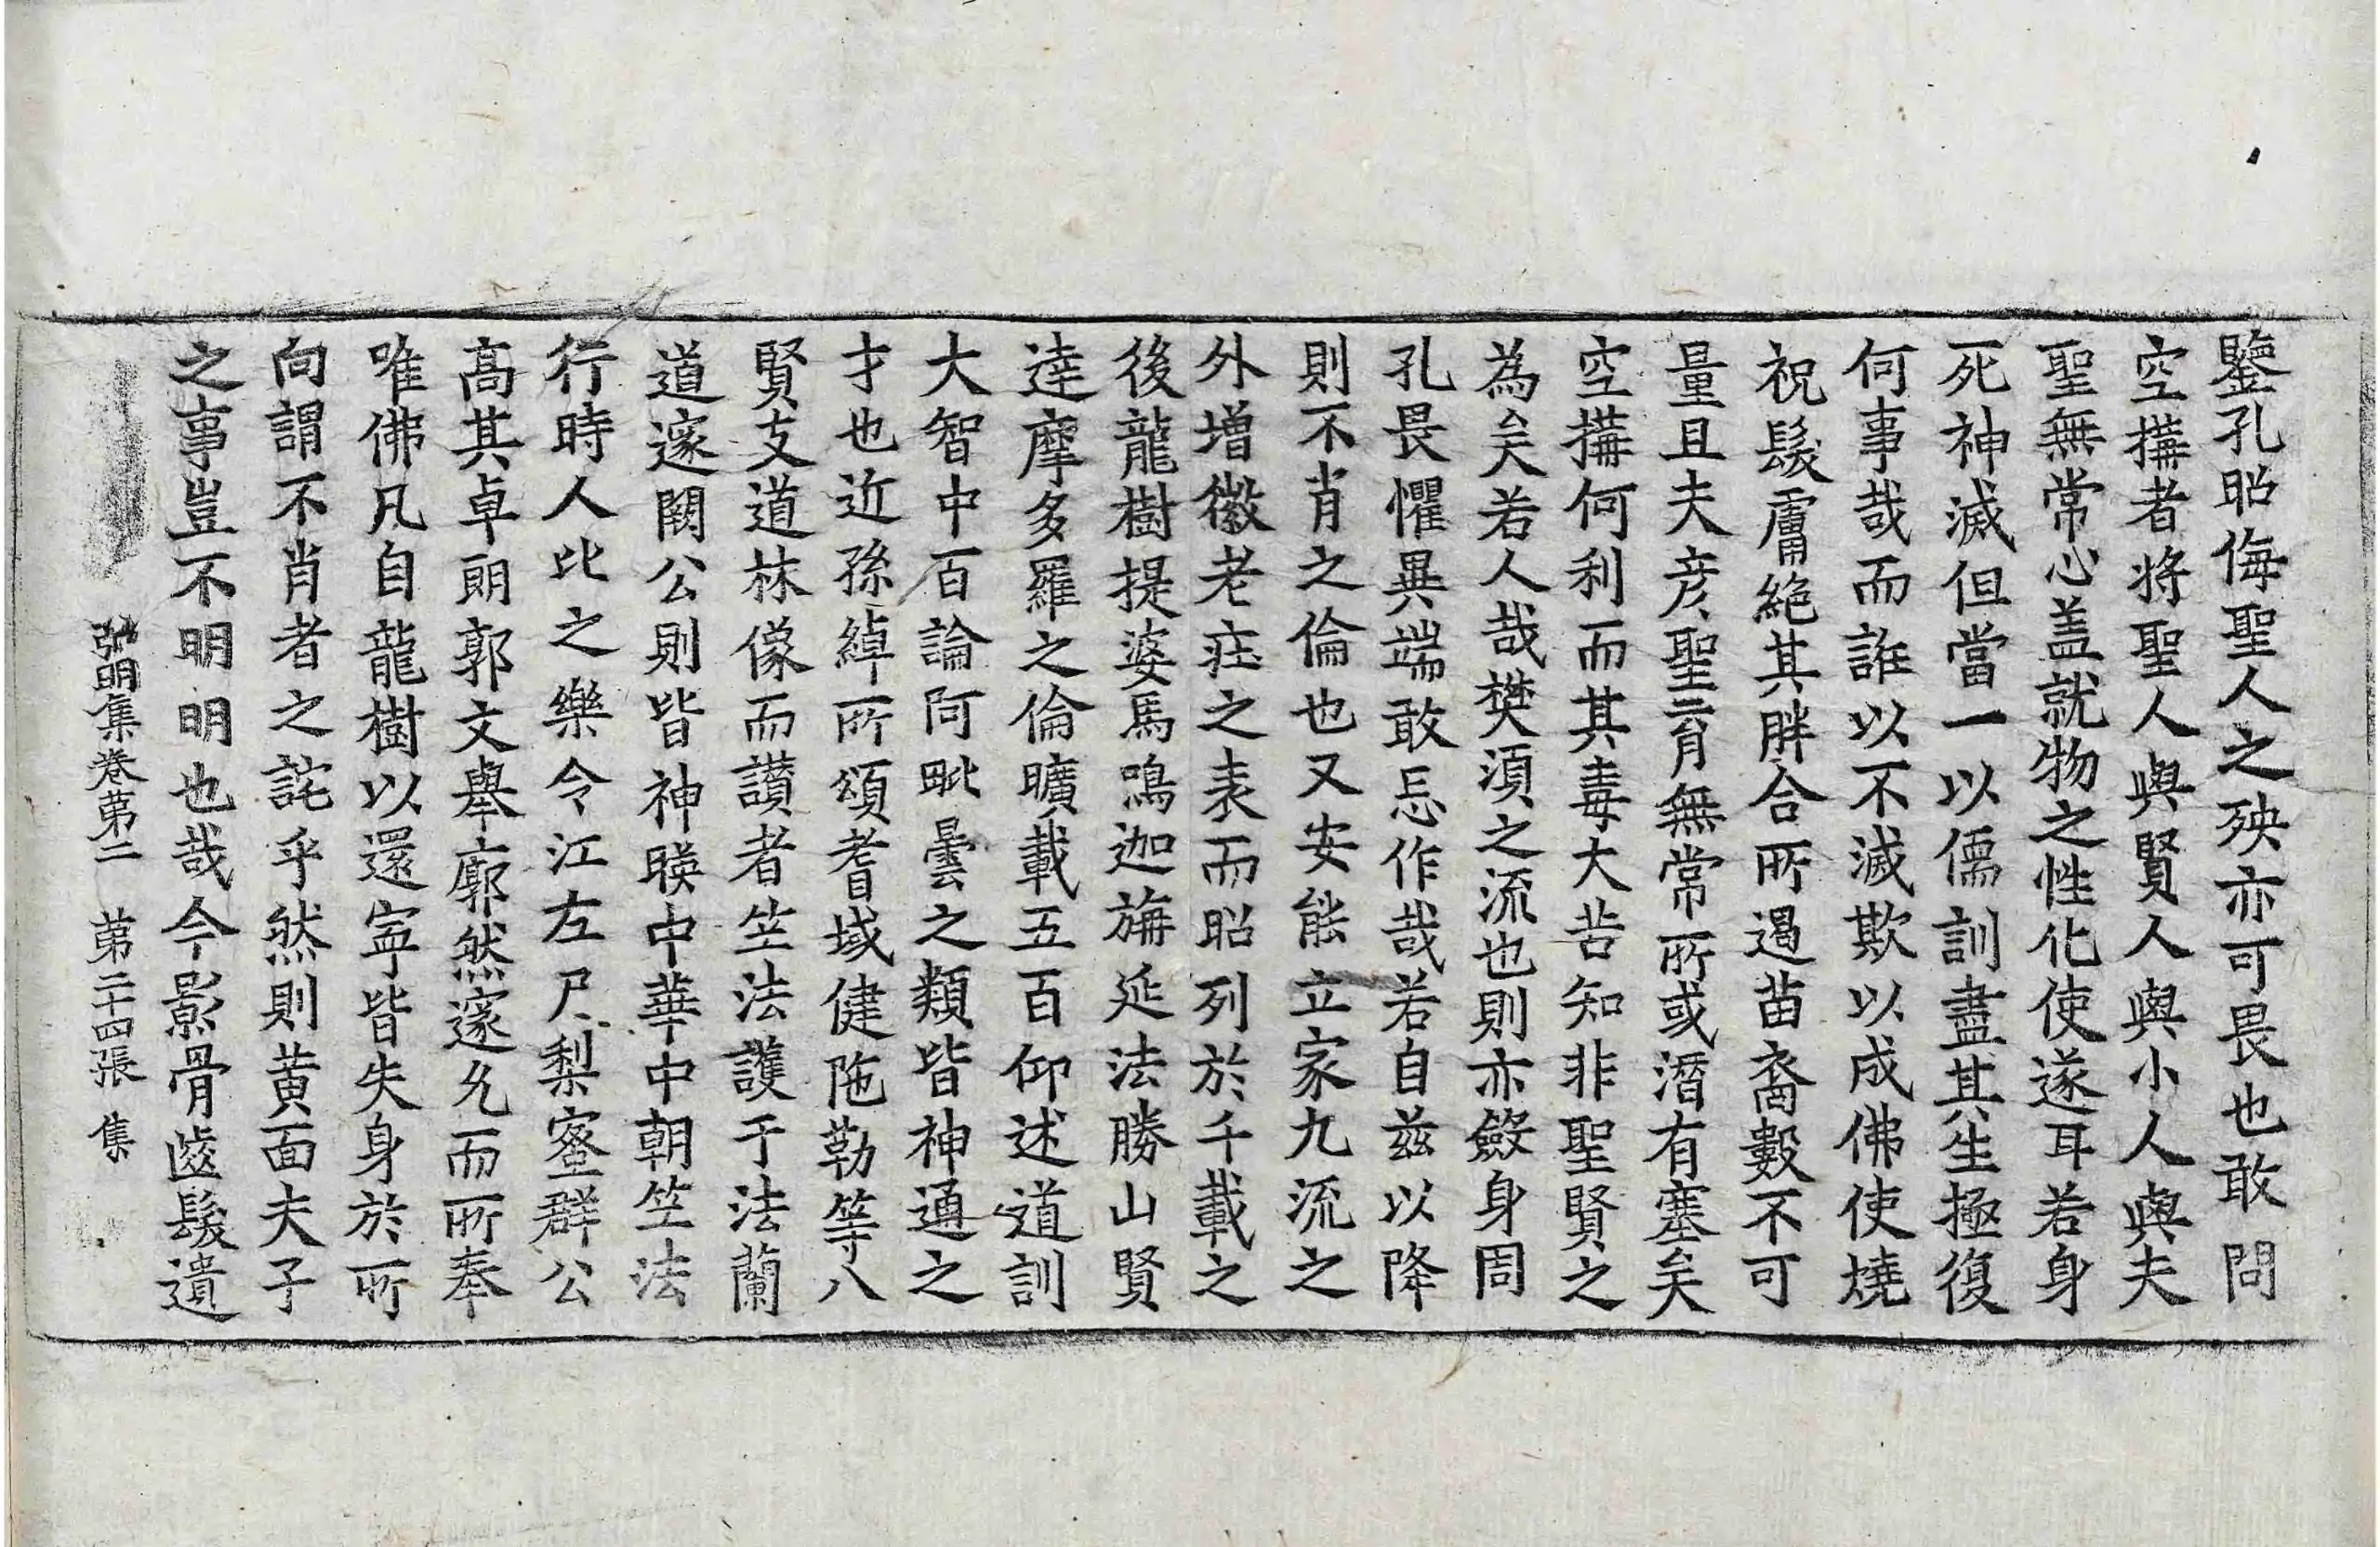 鑒孔昭侮聖人之殃亦可畏也敢問
空搆者將聖人與賢人與小人與夫
聖無常心盖就物之性化使遂耳若身
死神滅但當一以儒訓盡其生極復
何事哉而誑以不滅欺以成佛使燒
祝髮膚絶其胖合所遏苗裔數不可
量且夫彦聖育無常所或潛有塞矣
空搆何利而其毒大苦知非聖賢之
為矣若人哉樊湏之流也則亦斂身周
孔畏懼異端敢忘作哉若自茲以降
則不肖之倫也又安能立家九流之
外增徽老莊之表而昭列於千載之
後龍樹提婆馬鳴迦旃延法勝山賢
達摩多羅之倫曠載五百仰述道訓
大智中百論阿毗曇之類皆神通之
才也近孫綽所頌耆域健陁勒等八
賢支道林像而讃者竺法護于法蘭
道邃闕公則皆神映中華中朝竺法
行時人比之樂令江左尸梨蜜群公
高其卓朗郭文舉廓然邃允而所奉
唯佛凡自龍樹以還寜皆失身於所
向謂不肖者之詫乎然則黄面夫子
之事豈不明明也哉今影骨齒髮遺
弘明集卷第二 第二十四張 集